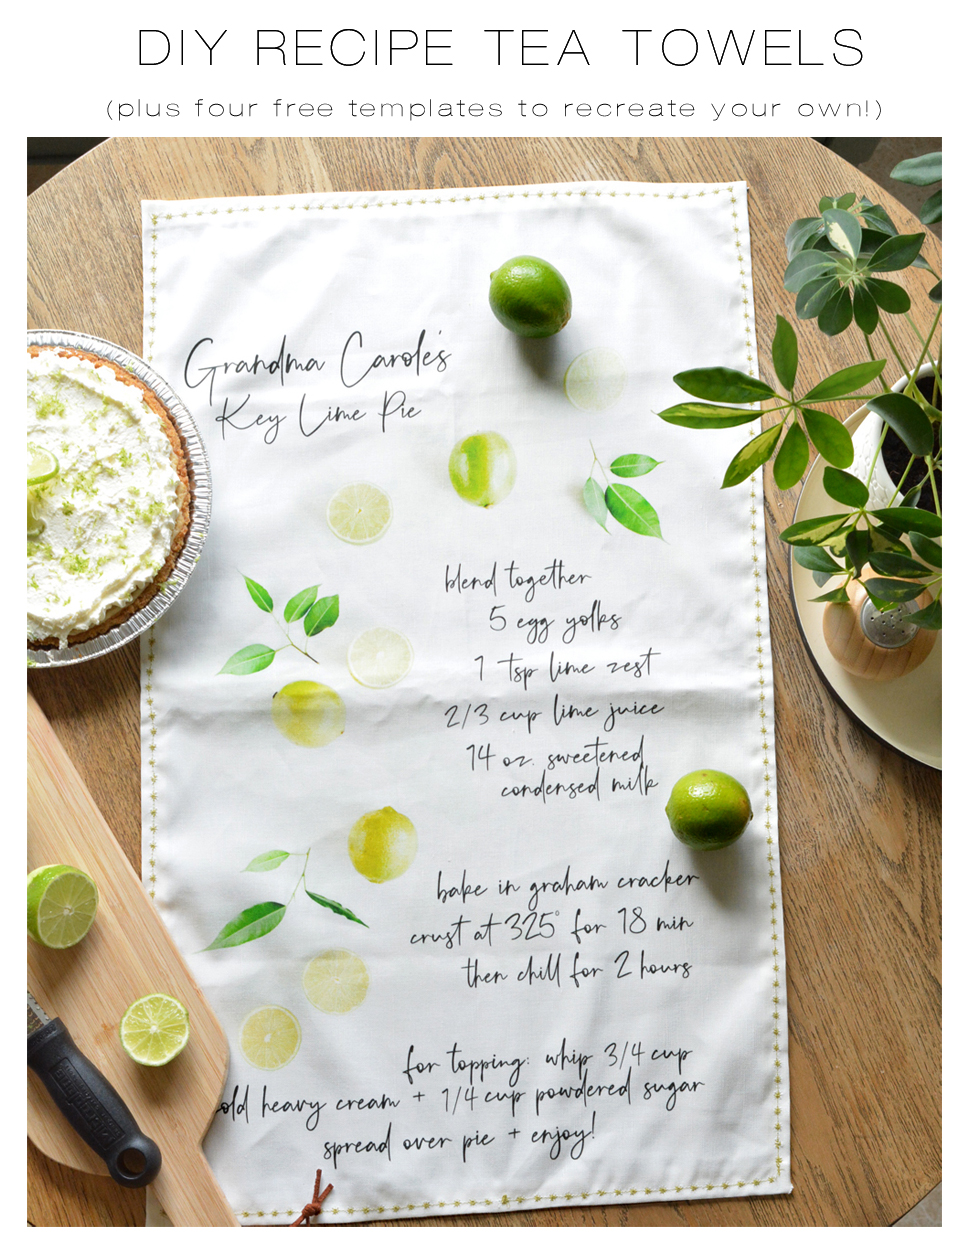 DIY RECIPE TEA TOWELS
(plus four free templates to recreate your own!)
Grandma Carole's
Key Lime Pie
blend together
5 egg yolks
1 tsp lime zest
2/3 cup lime juice
14 oz. sweetened
condensed milk
bake in graham cracker
crust at 325° for 18 min
then chill for 2 hours
for topping: whip 3/4 cup
old heavy cream + 1/4 cup powdered sugar
spread over pie + enjoy!